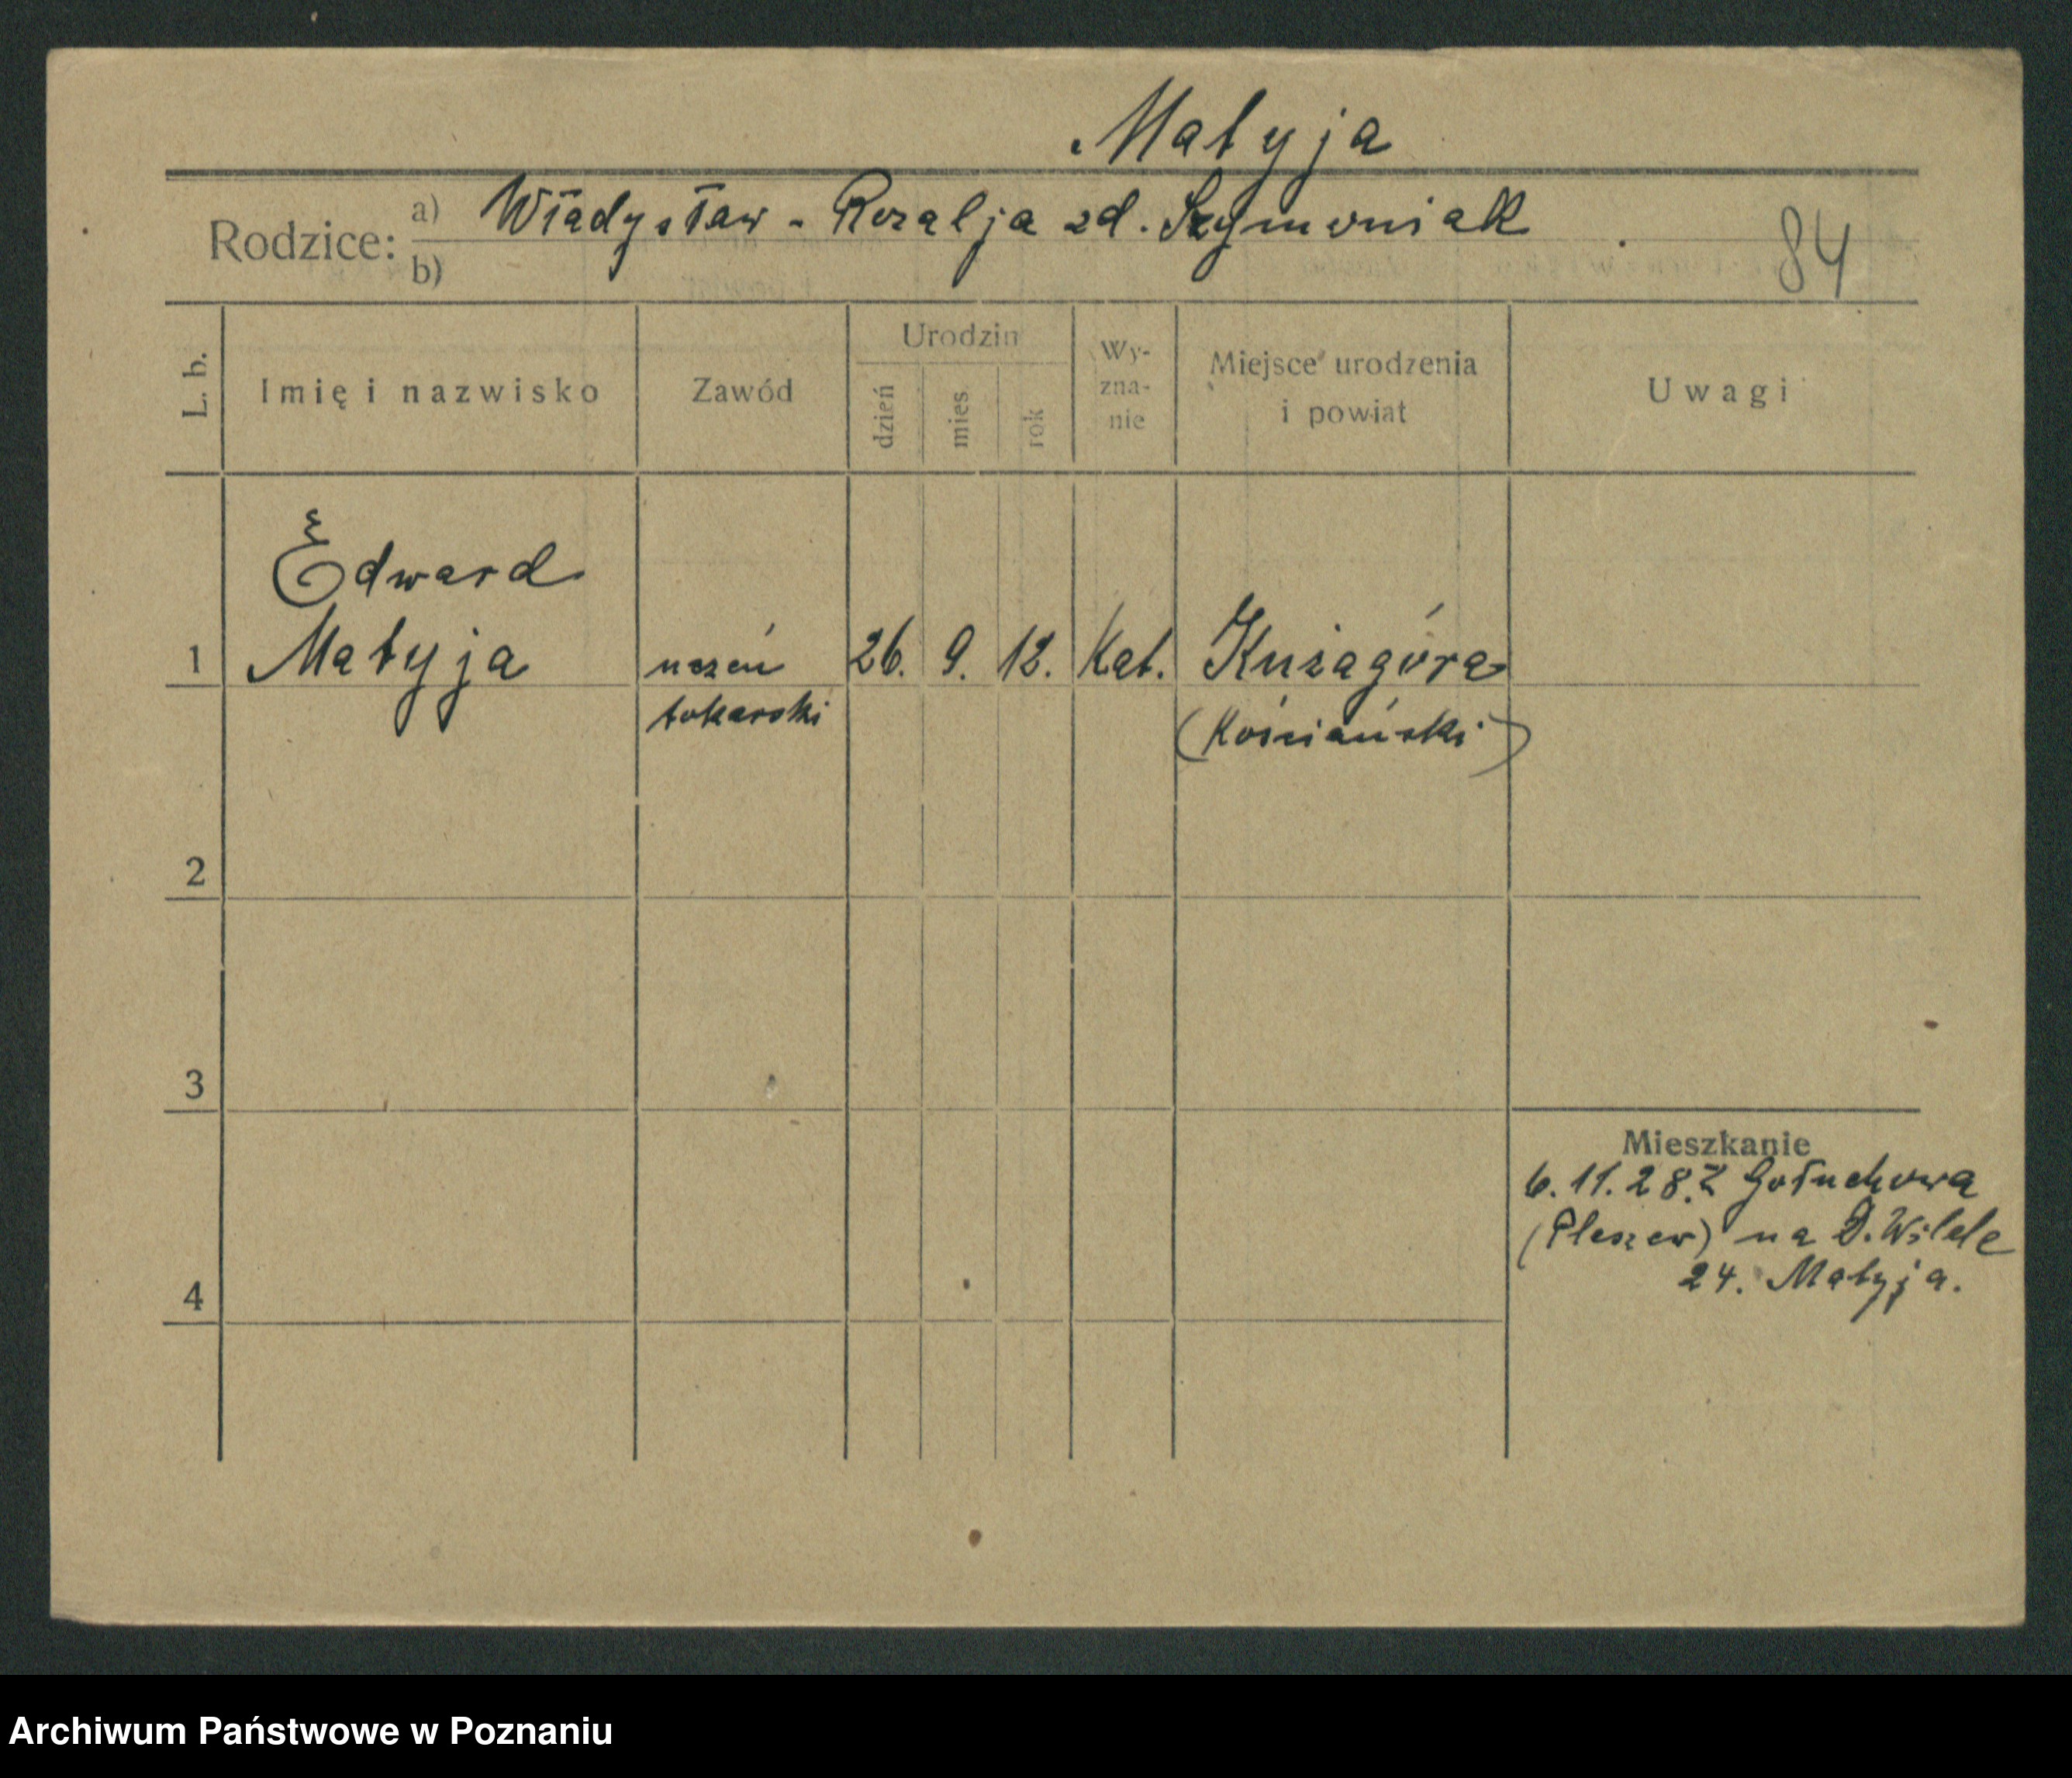 Matyja
Rodzice: a) Władysław - Rozalja zd. Szymoniak
b)
84
L. b. Imię i nazwisko Zawód Urodzin dzień mies. rok Wy-zna-nie Miejsce urodzenia i powiat Uwagi
Edward
1 Matyja uczeń 26. 9. 12. Kat. Kużagóra
tokarski (Kościański)
2
3
Mieszkanie
6.11.28. z Gołuchowa
(Pleszew) na D. Wilde
4 24. Matyja.
Archiwum Państwowe w Poznaniu